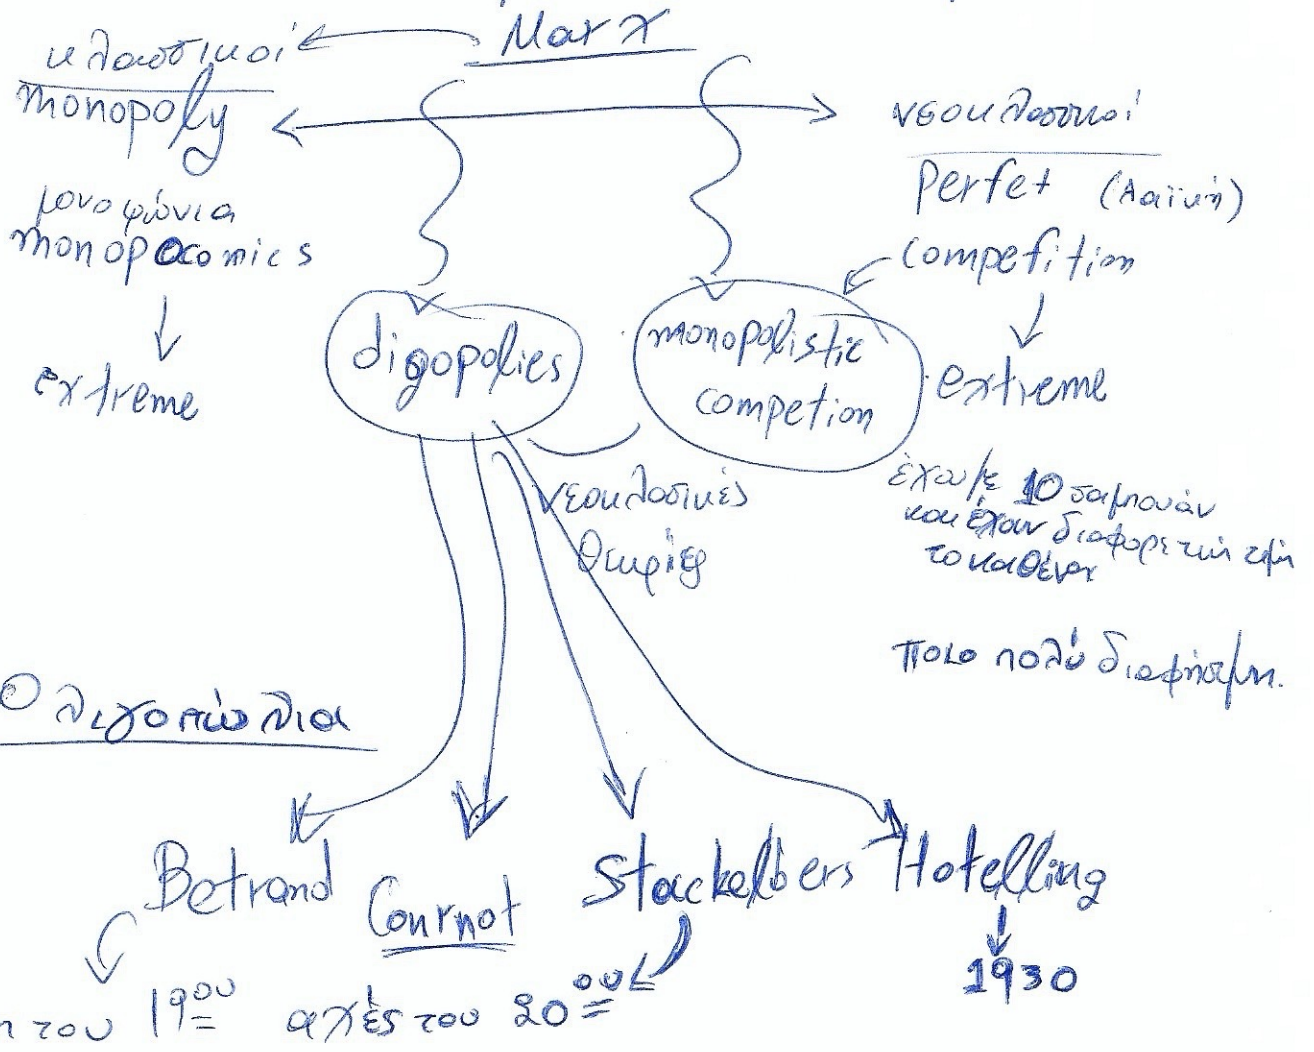 Marx
κλασσικοί
monopoly
μονοφώνια
monopocomics
extreme
νεοκλασσικοί
perfet (λαϊκή)
competition
extreme
digopolies
monopolistic
competion
νεοκλασικές
θεωρίες
έχουμε 10 σαμπουάν
και έχουν διαφορετική τιμή
το καθένα
ποιο πολύ διαφήσιμη.
Ολιγοπώλια
Betrand Cournot Stackelbers Hotelling
του 19ου αχές του 20ου
1930